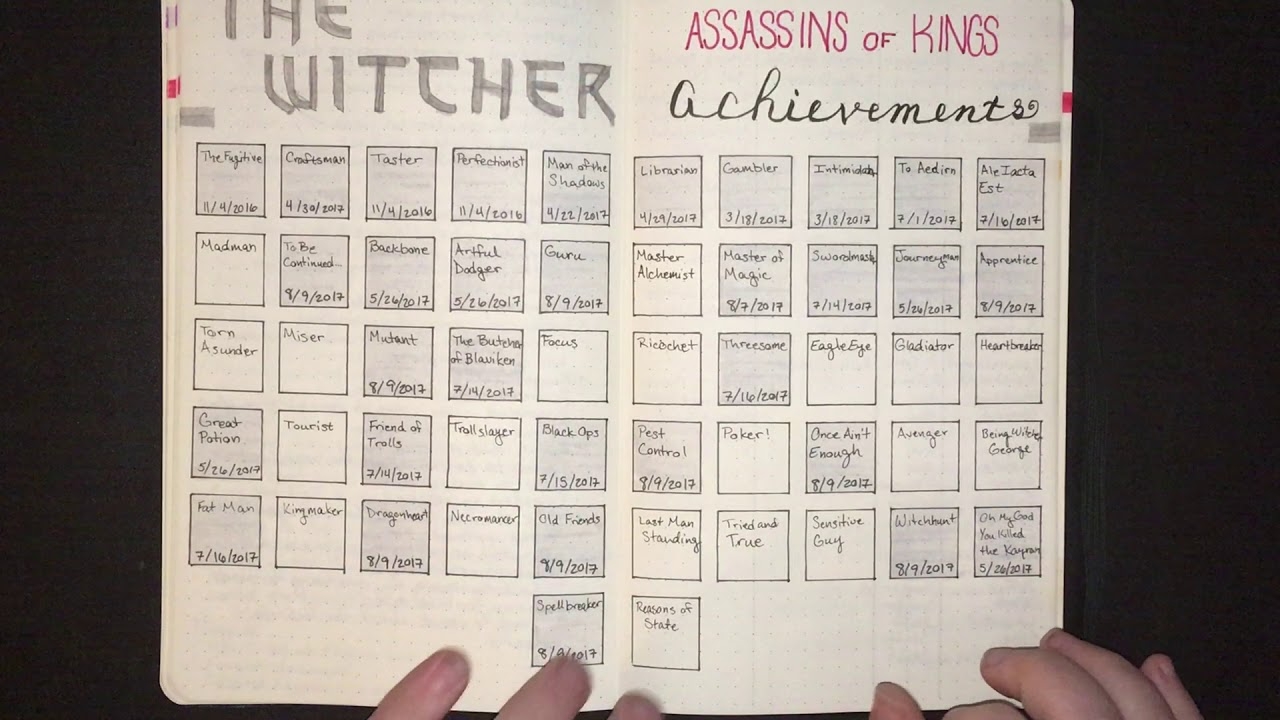 THE
WITCHER
ASSASSINS OF KINGS
Achievements
The Fugitive
11/4/2016
Craftsman
4/30/2017
Taster
11/4/2016
Perfectionist
11/4/2016
Man of the
Shadows
4/22/2017
Madman
To Be
Continued...
8/9/2017
Backbone
5/26/2017
Artful
Dodger
5/26/2017
Guru
8/9/2017
Torn
Asunder
Miser
Mutant
8/9/2017
The Butcher
of Blaviken
7/14/2017
Focus
Great
Potion
5/26/2017
Tourist
Friend of
Trolls
7/14/2017
Trollslayer
Black Ops
7/15/2017
Fat Man
7/16/2017
Kingmaker
Dragonheart
8/9/2017
Necromancer
Old Friends
8/9/2017
Spellbreaker
8/9/2017
Librarian
4/29/2017
Gambler
3/18/2017
Intimidator
3/18/2017
To Aedirn
7/1/2017
Ale Iacta
Est
7/16/2017
Master
Alchemist
Master of
Magic
8/7/2017
Swordmaster
7/14/2017
Journeyman
5/26/2017
Apprentice
8/9/2017
Ricochet
Threesome
7/16/2017
Eagle Eye
Gladiator
Heartbreaker
Pest
Control
8/9/2017
Poker!
Once Ain't
Enough
8/9/2017
Avenger
Being Witcher
George
Last Man
Standing
Tried and
True
Sensitive
Guy
Witchhunt
8/9/2017
Oh My God
You Killed
the Kayran
5/26/2017
Reasons of
State